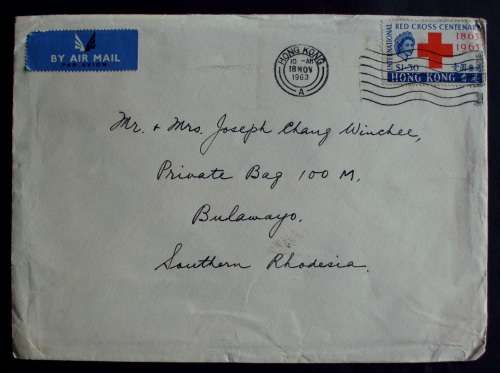 BY AIR MAIL
PAR AVION
HONG KONG
10 - AM
18 NOV
1963
A
INTERNATIONAL
RED CROSS CENTENARY
1863
1963
$1·30
HONG KONG
Mr. & Mrs. Joseph Chang Winchee,
Private Bag 100 M,
Bulawayo.
Southern Rhodesia.